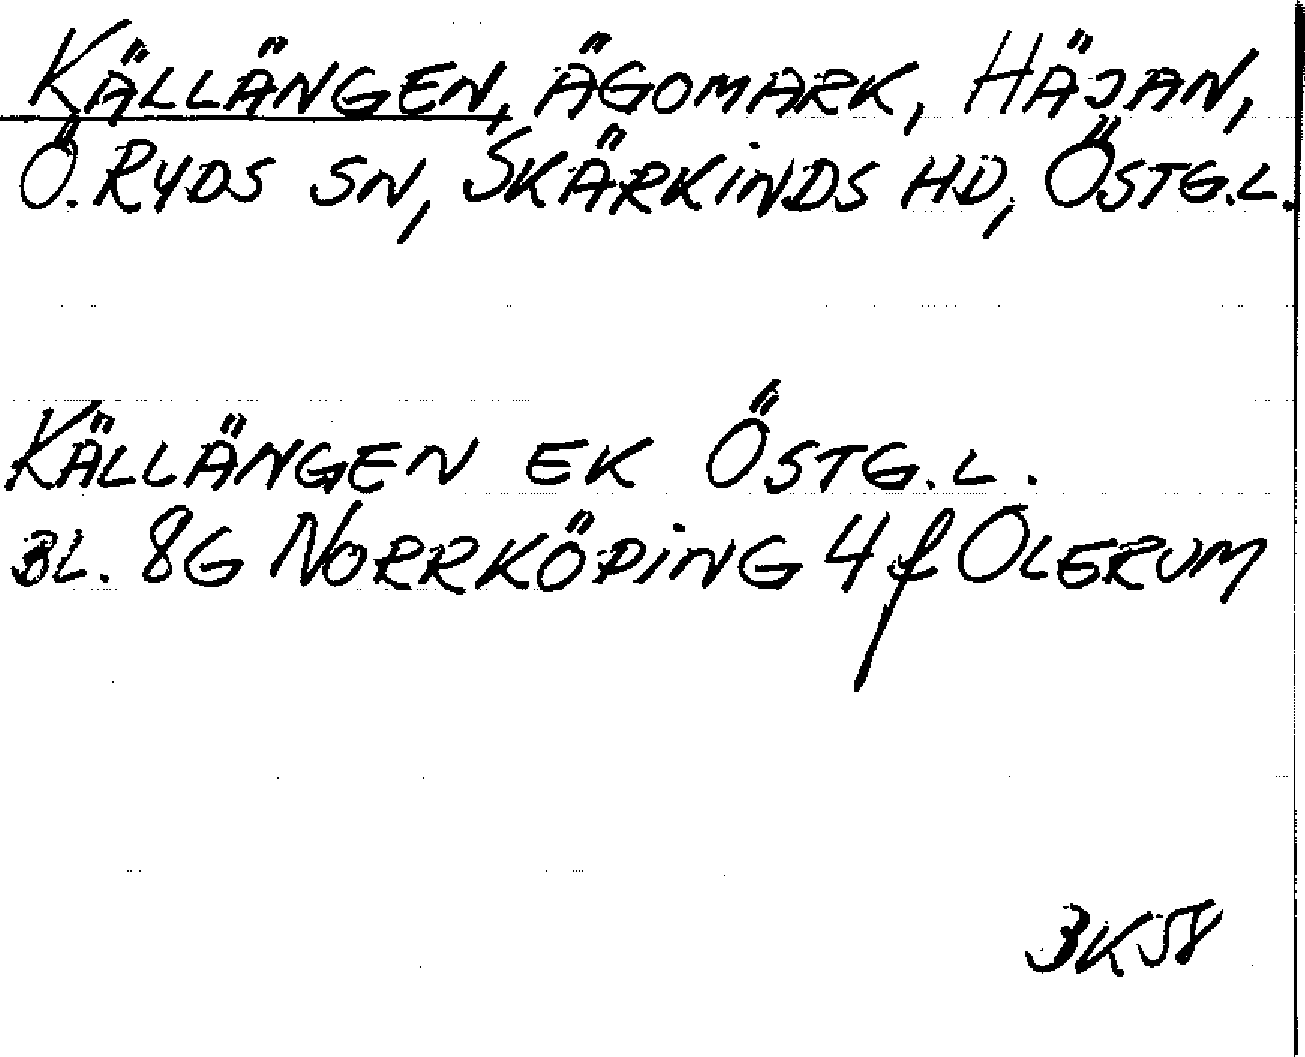 KÄLLÄNGEN, ÄGOMARK, HÄJAN,
Ö. RYDS SN, SKÄRKINDS HD, ÖSTG.L.
KÄLLÄNGEN EK ÖSTG.L.
BL. 8G NORRKÖPING 4f OLERUM
BK58